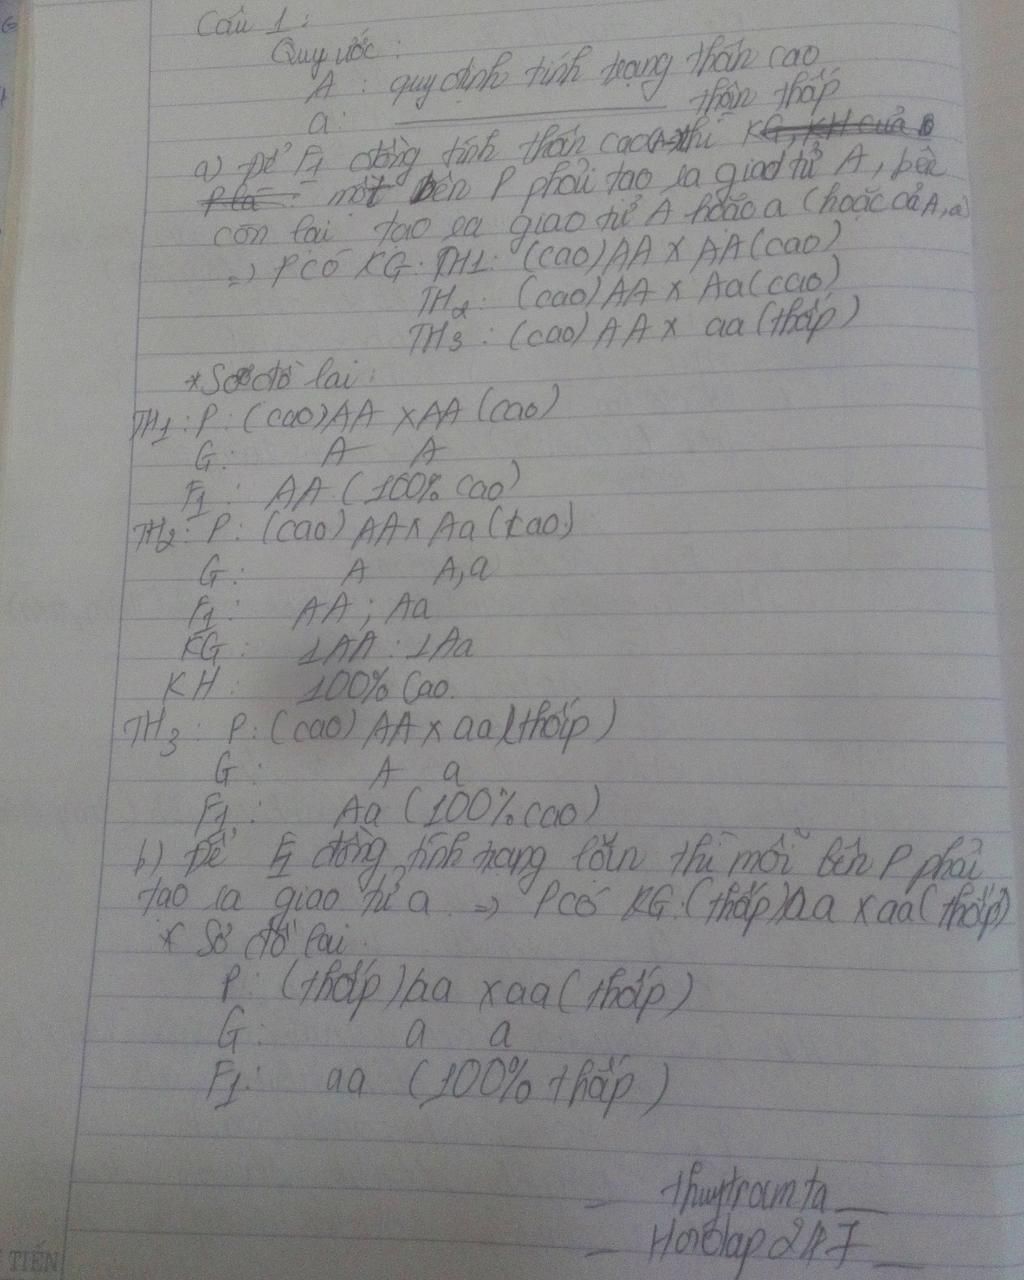 Câu 1:
Quy ước:
A: quy định tính trạng thân cao
a: thân thấp
a) Để F1 đồng tính thân cao thì KG, KH của
P là một bên P phải tạo ra giao tử A, bên
còn lại tạo ra giao tử A hoặc a (hoặc cả A, a)
=> P có KG: TH1: (cao) AA x AA (cao)
TH2: (cao) AA x Aa (cao)
TH3: (cao) AA x aa (thấp)
* Sơ đồ lai:
TH1: P: (cao) AA x AA (cao)
G: A A
F1: AA (100% cao)
TH2: P: (cao) AA x Aa (cao)
G: A A, a
F1: AA ; Aa
KG: 1AA : 1Aa
KH: 100% Cao.
TH3: P: (cao) AA x aa (thấp)
G: A a
F1: Aa (100% cao)
b) Để F1 đồng tính trạng lặn thì mỗi bên P phải
tạo ra giao tử a => P có KG: (thấp) aa x aa (thấp)
* Sơ đồ lai:
P: (thấp) aa x aa (thấp)
G: a a
F1: aa (100% thấp)
_ thuytramta _
_ Hoidap247 _
TIẾN